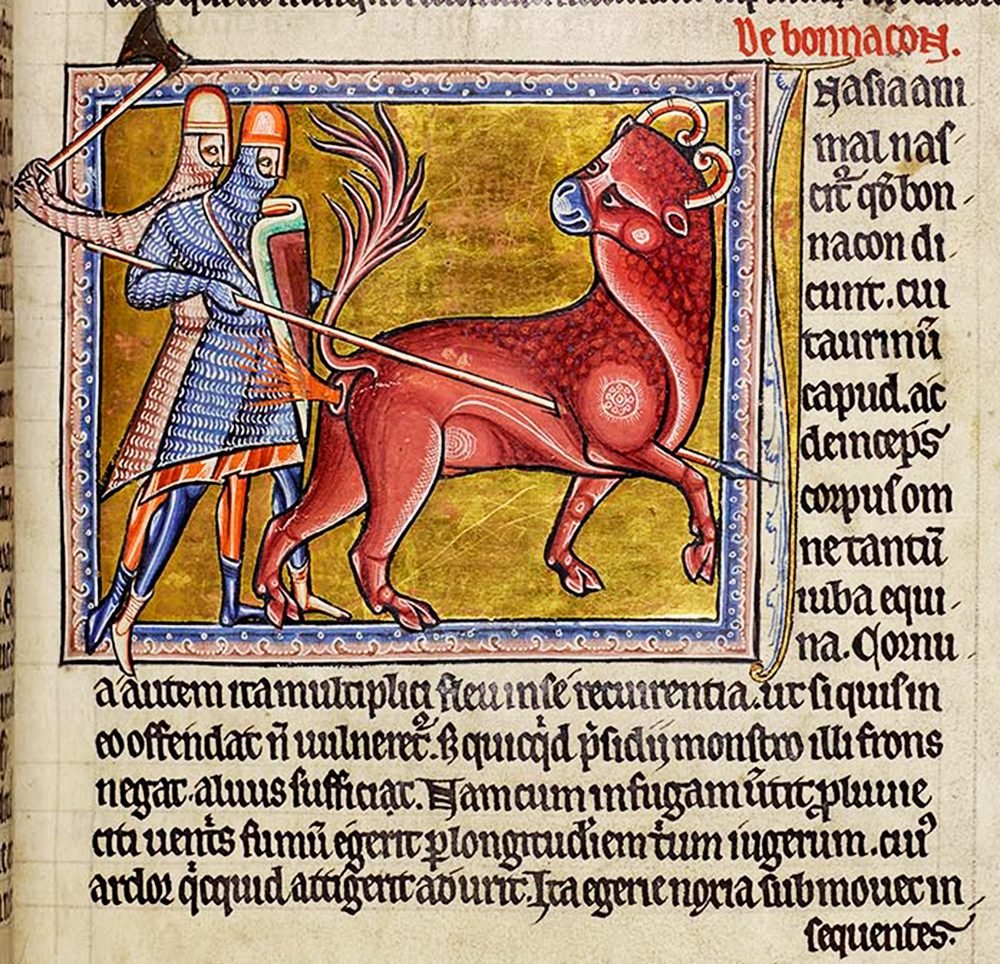 De bonnacon.
In asia ani
mal nas
cit̉ qd̄ bon
nacon di
cunt. cui
taurinū
capud. ac
deinceps
corpus om
ne tantū
iuba equi
na. Cornu
a autem ita multiplici flexu in se recurrentia. ut si quis in
eo offendat n̄ uulneret̉. S; quicq̇d p̄sidii monstro illi frons
negat. aluus sufficiat. Nam cum in fugam ūtit̉ ꝓluuie
citi uent̄s fumū egerit ꝑ longitudinem t̄um iugerum. cui᷒
ardor q̇cquid attigerit adurit. Ita egerie noxia submouet in
sequentes.